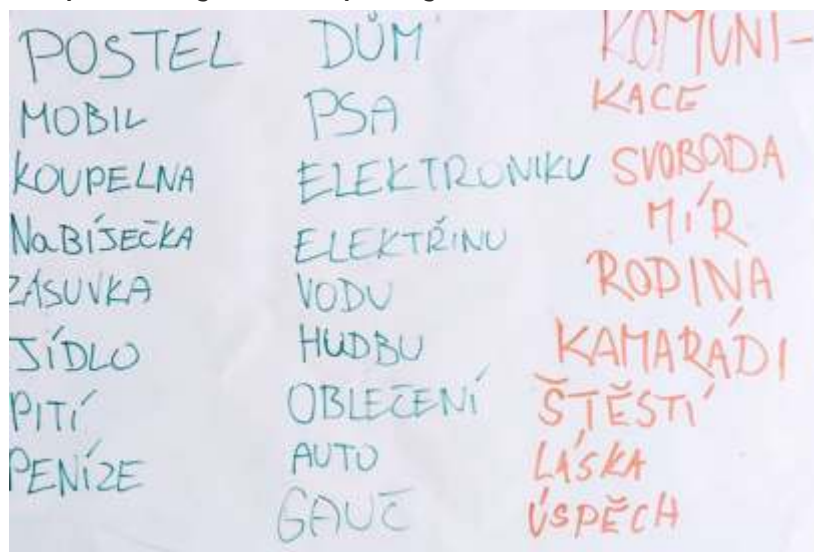 POSTEL
MOBIL
KOUPELNA
NaBÍJEČKA
ZÁSUVKA
JÍDLO
PITÍ
PENÍZE
DŮM
PSA
ELEKTRONIKU
ELEKTŘINU
VODU
HUDBU
OBLEČENÍ
AUTO
GAUČ
KOMUNI-
KACE
SVOBODA
MÍR
RODINA
KAMARÁDI
ŠTĚSTÍ
LÁSKA
ÚSPĚCH